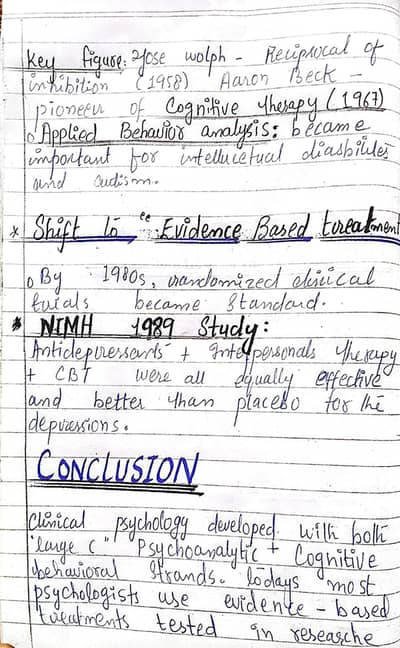 Key figure: Jose wolph - Reciprocal of
inhibition (1958) Aaron Beck -
pioneer of Cognitive therapy (1967)
o Applied Behavior analysis: became
important for intellucetual diasbilutes
and autism.
* Shift to "Evidence Based treatment
o By 1980s, randomized clinical
trials became standard.
* NIMH 1989 Study:
Antidepressants + Interpersonals therapy
+ CBT were all equally effective
and better than placebo for the
depressions.
CONCLUSION
Clinical psychology developed with both
"large C" Psychoanalytic + Cognitive
behavioral strands. todays most
psychologists use evidence - based
treatments tested in researche